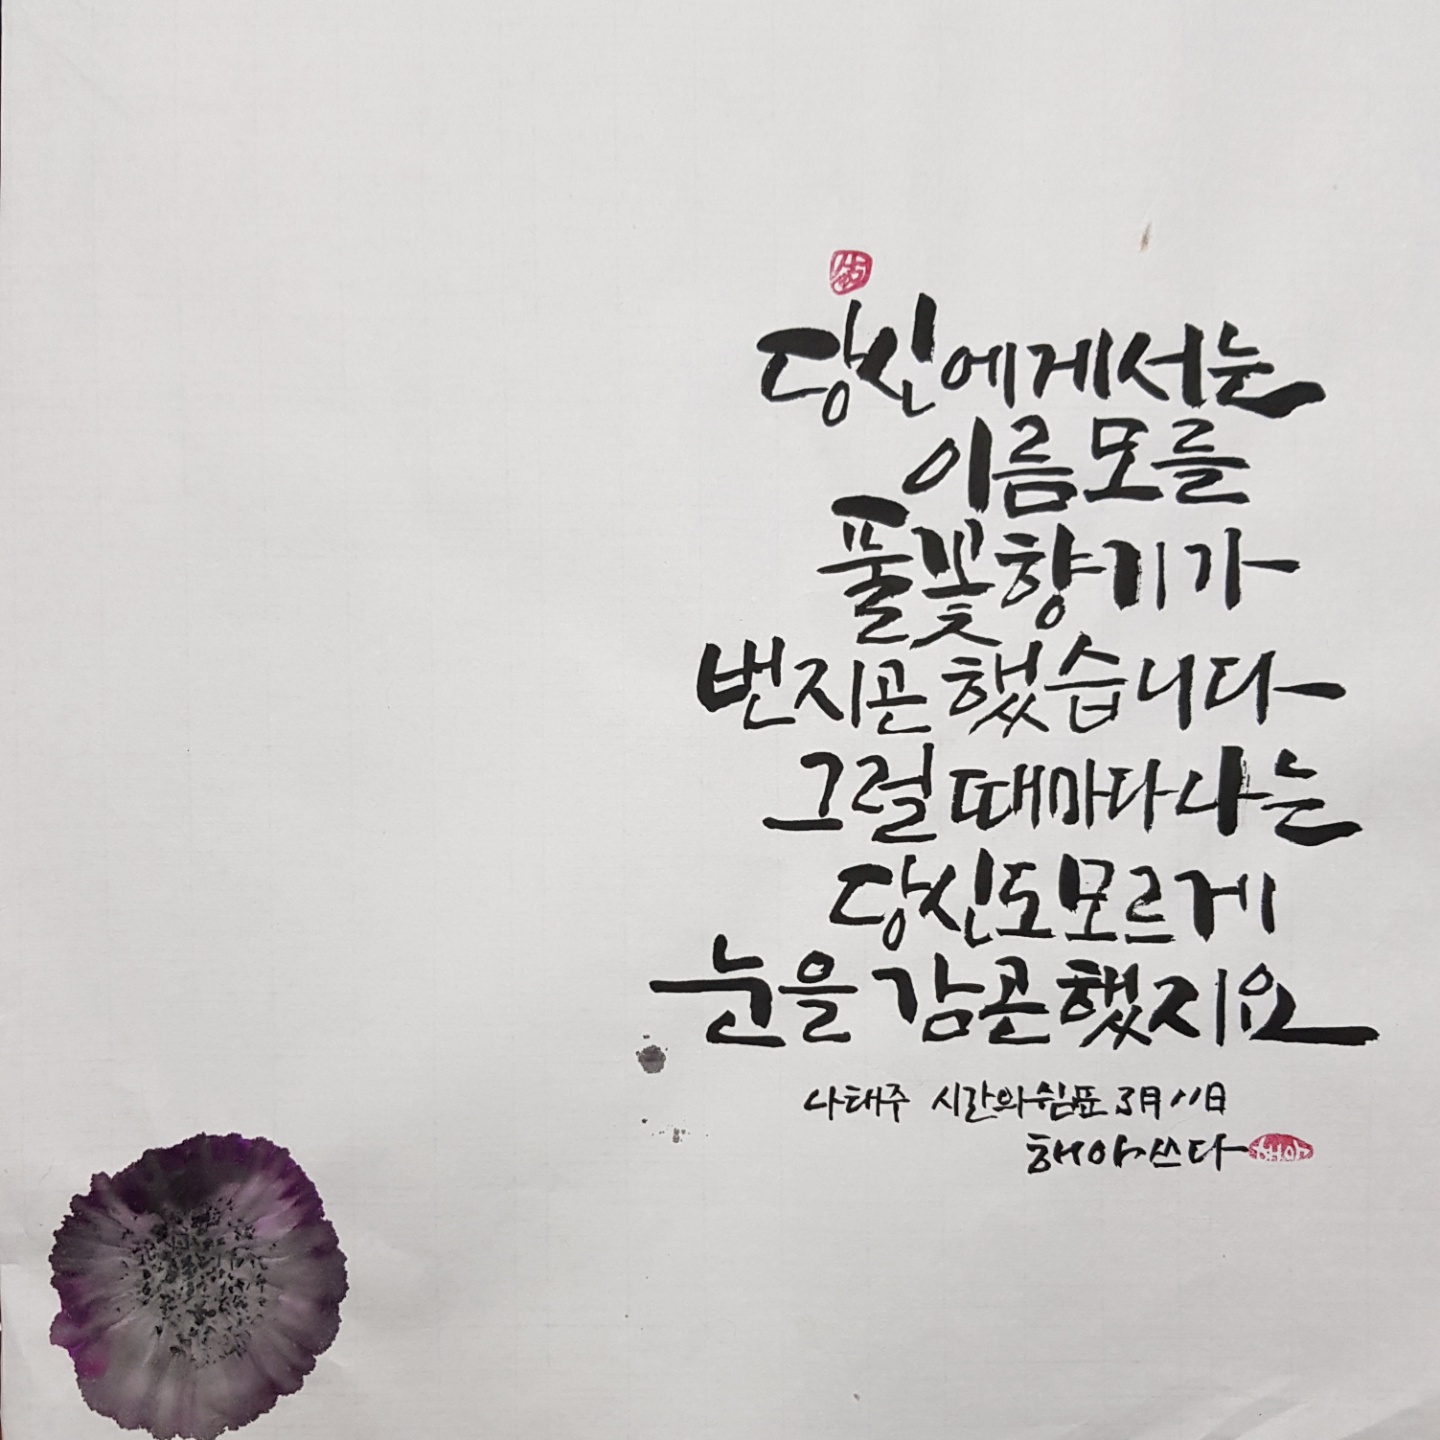 당신에게서는
이름 모를
풀꽃향기가
번지곤 했습니다
그럴 때마다 나는
당신도 모르게
눈을 감곤 했지요
나태주 시간의 쉼표 3月 11日
해야 쓰다
해야